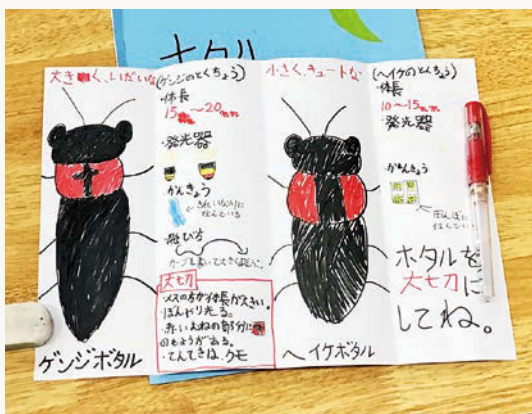 ホタル
大きく、いだいな
(ゲンジのとくちょう)
・体長
15mm〜20mm
・発光器
かんきょう
きれいな川に
住んでいる
・飛び方
カーブを書いて大きく飛ぶ。
大切
・メスの方が体長が大きい。
・ぼんやり光る。
・赤いむねの部分に
のもようがある。
・てんてきは、クモ
ゲンジボタル
小さく、キュートな
(ヘイケのとくちょう)
・体長
10〜15mm
・発光器
かんきょう
田んぼに
住んでいる
ホタルを
大切に
してね。
ヘイケボタル